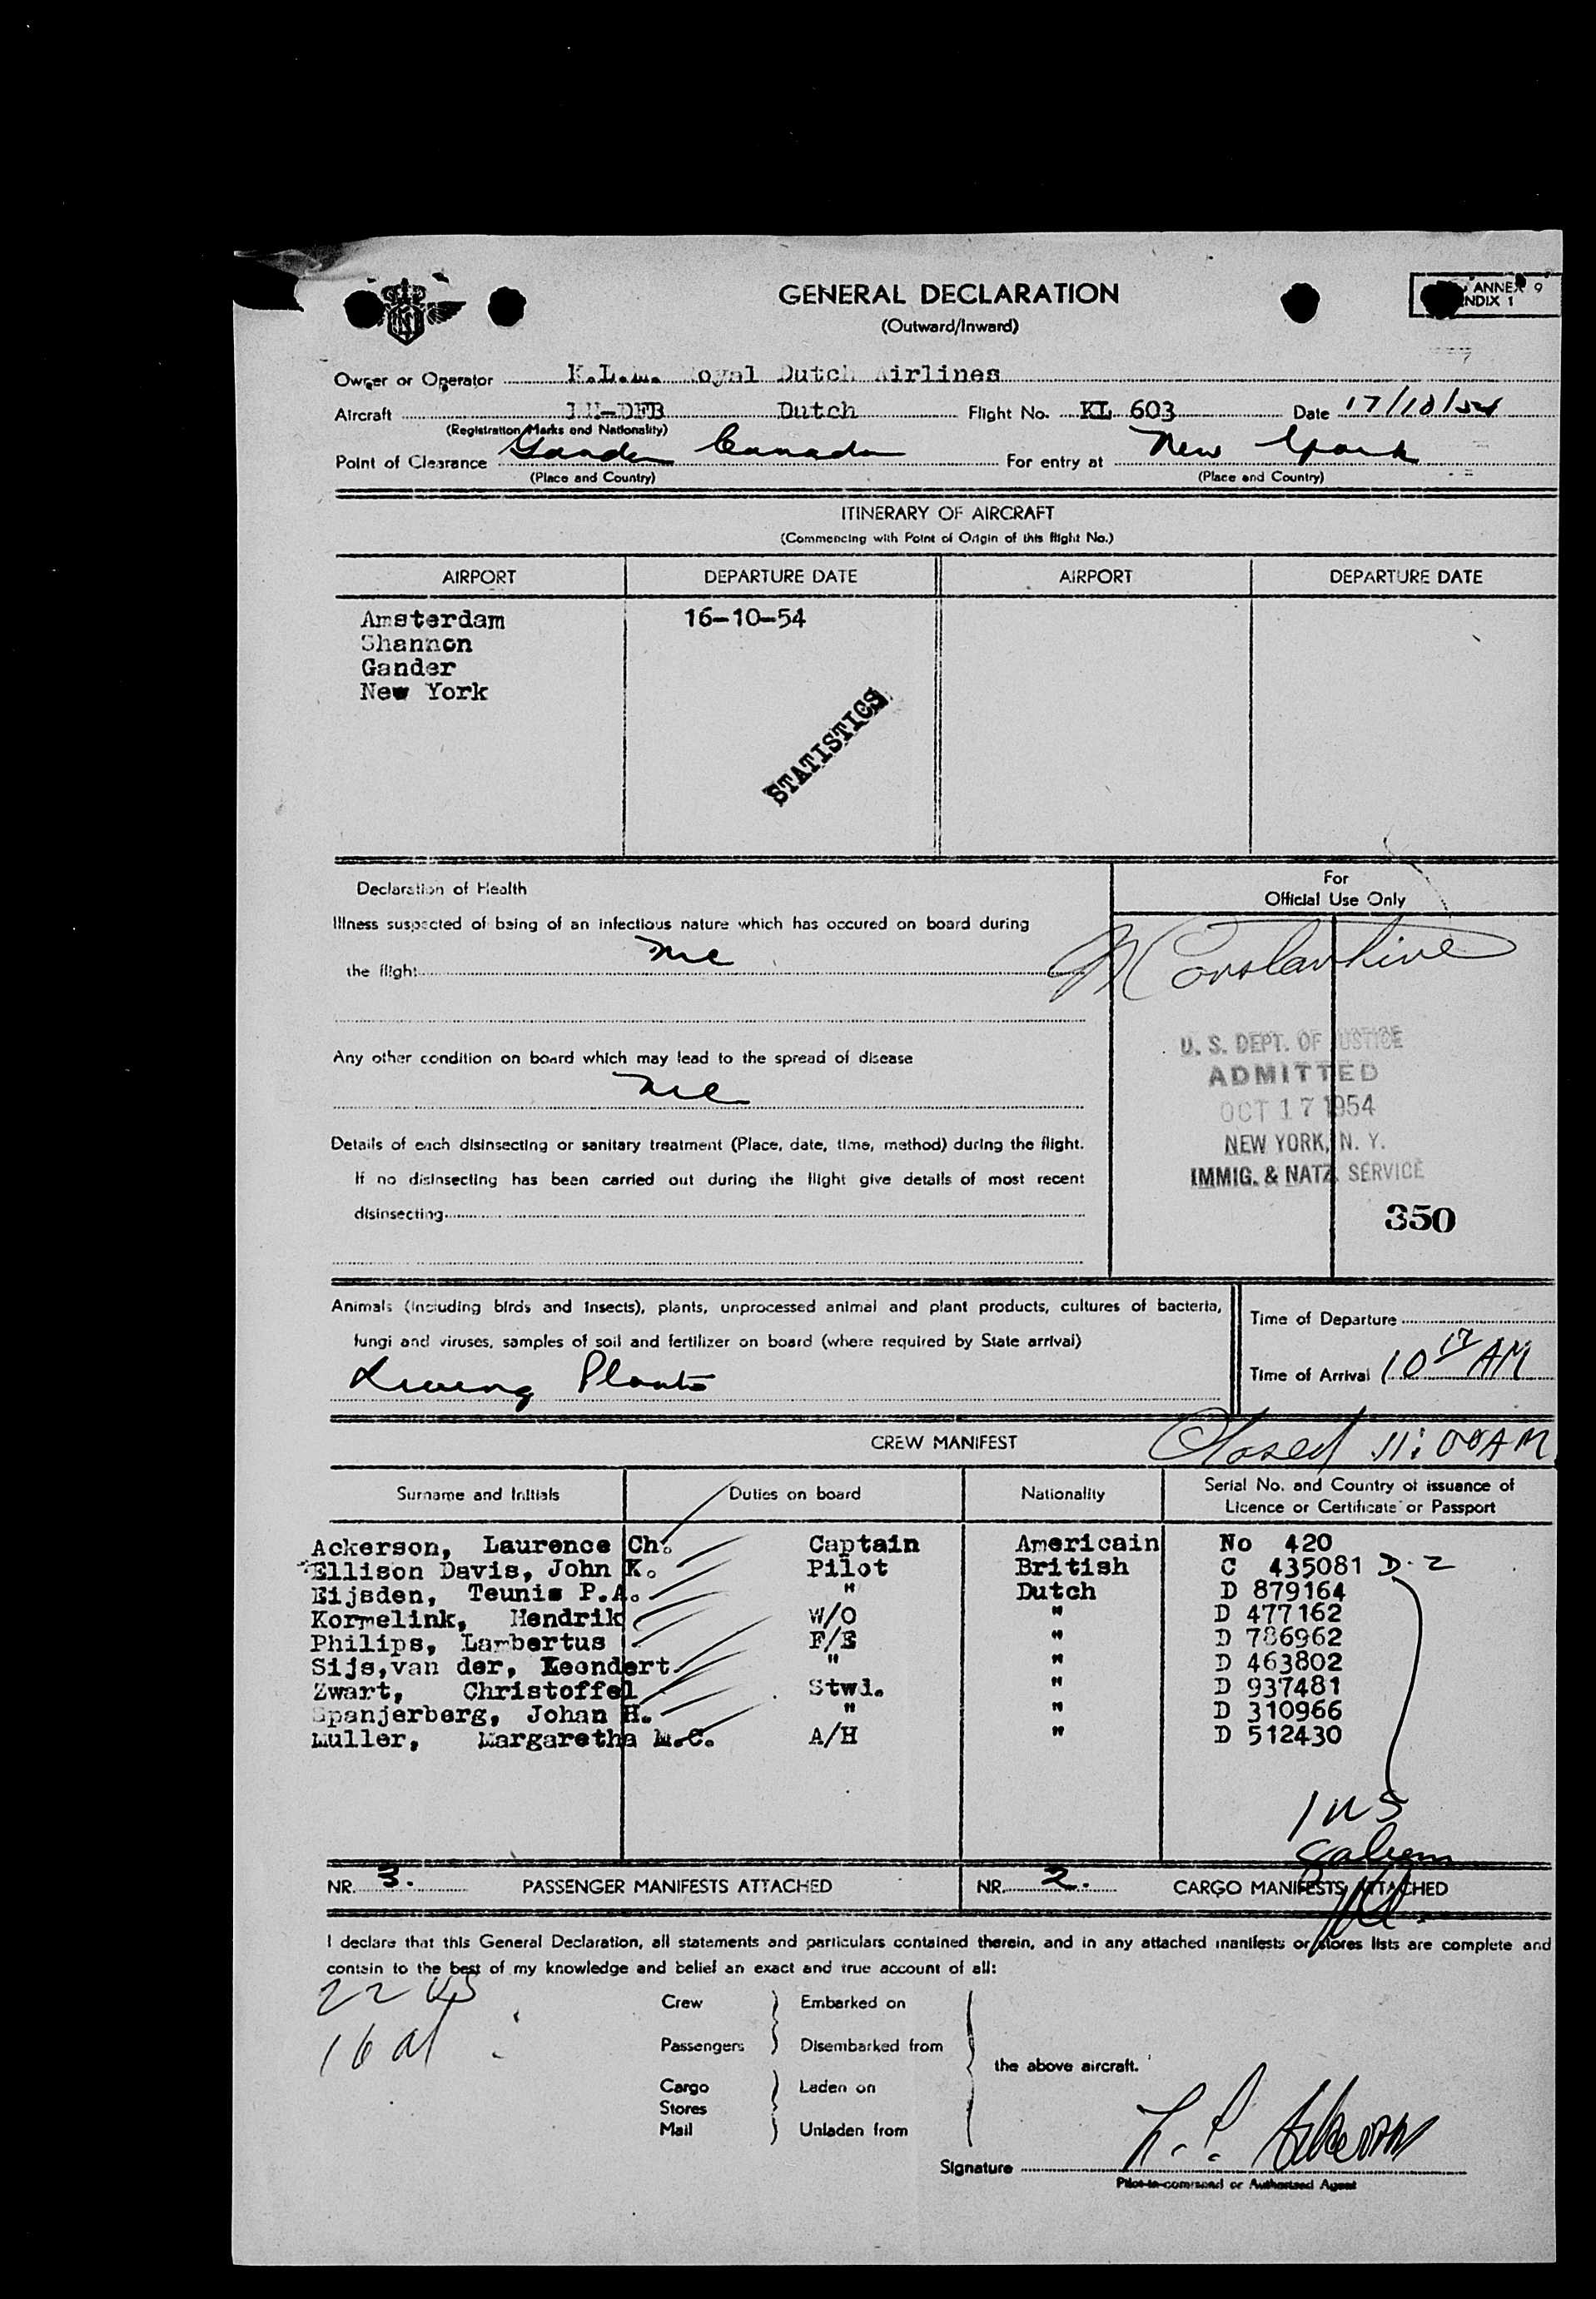 GENERAL DECLARATION
(Outward/Inward)
ANNEX 9
NDIX 1
Owner or Operator K.L.M. Royal Dutch Airlines
Aircraft PH-DFB Dutch Flight No. KL 603 Date 17/10/54
(Registration Marks and Nationality)
Point of Clearance Gander Canada For entry at New York
(Place and Country) (Place and Country)
ITINERARY OF AIRCRAFT
(Commencing with Point of Origin of this flight No.)
AIRPORT DEPARTURE DATE AIRPORT DEPARTURE DATE
Amsterdam 16-10-54
Shannon
Gander
New York
STATISTICS
Declaration of Health
For
Official Use Only
Illness suspected of being of an infectious nature which has occured on board during
the flight nil
M Constantine
Any other condition on board which may lead to the spread of disease
nil
U. S. DEPT. OF JUSTICE
ADMITTED
OCT 17 1954
NEW YORK, N. Y.
IMMIG. & NATZ. SERVICE
350
Details of each disinsecting or sanitary treatment (Place, date, time, method) during the flight.
If no disinsecting has been carried out during the flight give details of most recent
disinsecting
Animals (including birds and insects), plants, unprocessed animal and plant products, cultures of bacteria,
fungi and viruses, samples of soil and fertilizer on board (where required by State arrival)
Living Plants
Time of Departure
Time of Arrival 10 17 AM
CREW MANIFEST Closed 11:00 AM
Surname and Initials Duties on board Nationality Serial No. and Country of issuance of
Licence or Certificate or Passport
Ackerson, Laurence Ch. Captain Americain No 420
Ellison Davis, John K. Pilot British C 435081 D-2
Eijsden, Teunis P.A. " Dutch D 879164
Kormelink, Hendrik W/O " D 477162
Philips, Lambertus F/E " D 786962
Sijs,van der, Leondert " " D 463802
Zwart, Christoffel Stwd. " D 937481
Spanjerberg, Johan H. " " D 310966
Muller, Margaretha M.C. A/H " D 512430
INS
NR. 3. PASSENGER MANIFESTS ATTACHED NR. 2. CARGO MANIFESTS ATTACHED
I declare that this General Declaration, all statements and particulars contained therein, and in any attached manifests or stores lists are complete and
contain to the best of my knowledge and belief an exact and true account of all:
22 US
16 al
Crew Embarked on
Passengers Disembarked from
the above aircraft.
Cargo Laden on
Stores
Mail Unladen from
Signature L. C. Ackerson
Pilot-in-command or Authorised Agent